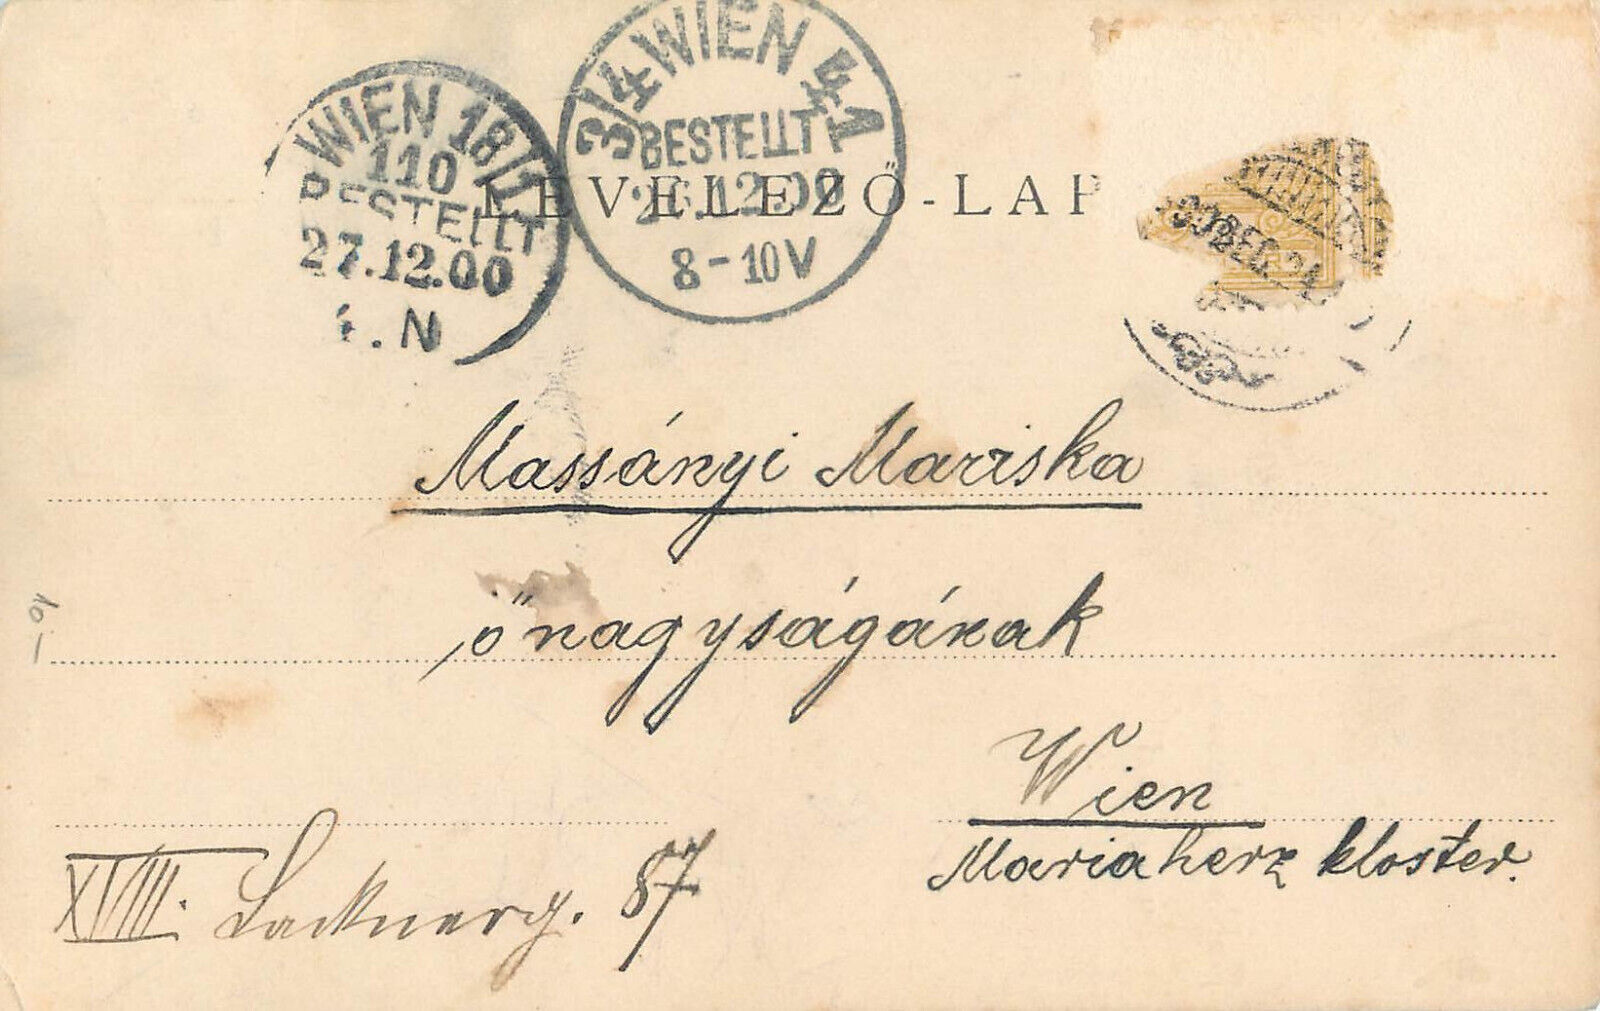 WIEN 18/1
110
BESTELLT
27.12.00
. N
3/4 WIEN 41
BESTELLT
26.12.00
8-10V
LEVELEZŐ-LAP
900 DEC. 24
Massányi Mariska
őnagyságának
Wien
Mariaherz kloster.
XVIII. Lacknerg. 87
10-